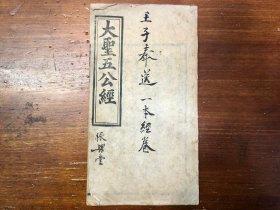 大聖五公經
王子奉送一本經卷
張
堂